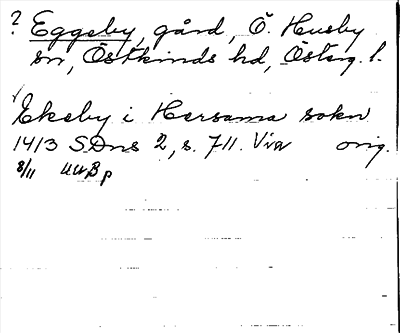 ? Eggeby, gård, Ö. Husby
sn, Östkinds hd, Österg. l.
Ekeby i Hersama sokn
1413 SDns 2, s. 711. Via orig.
8/11 UUB p